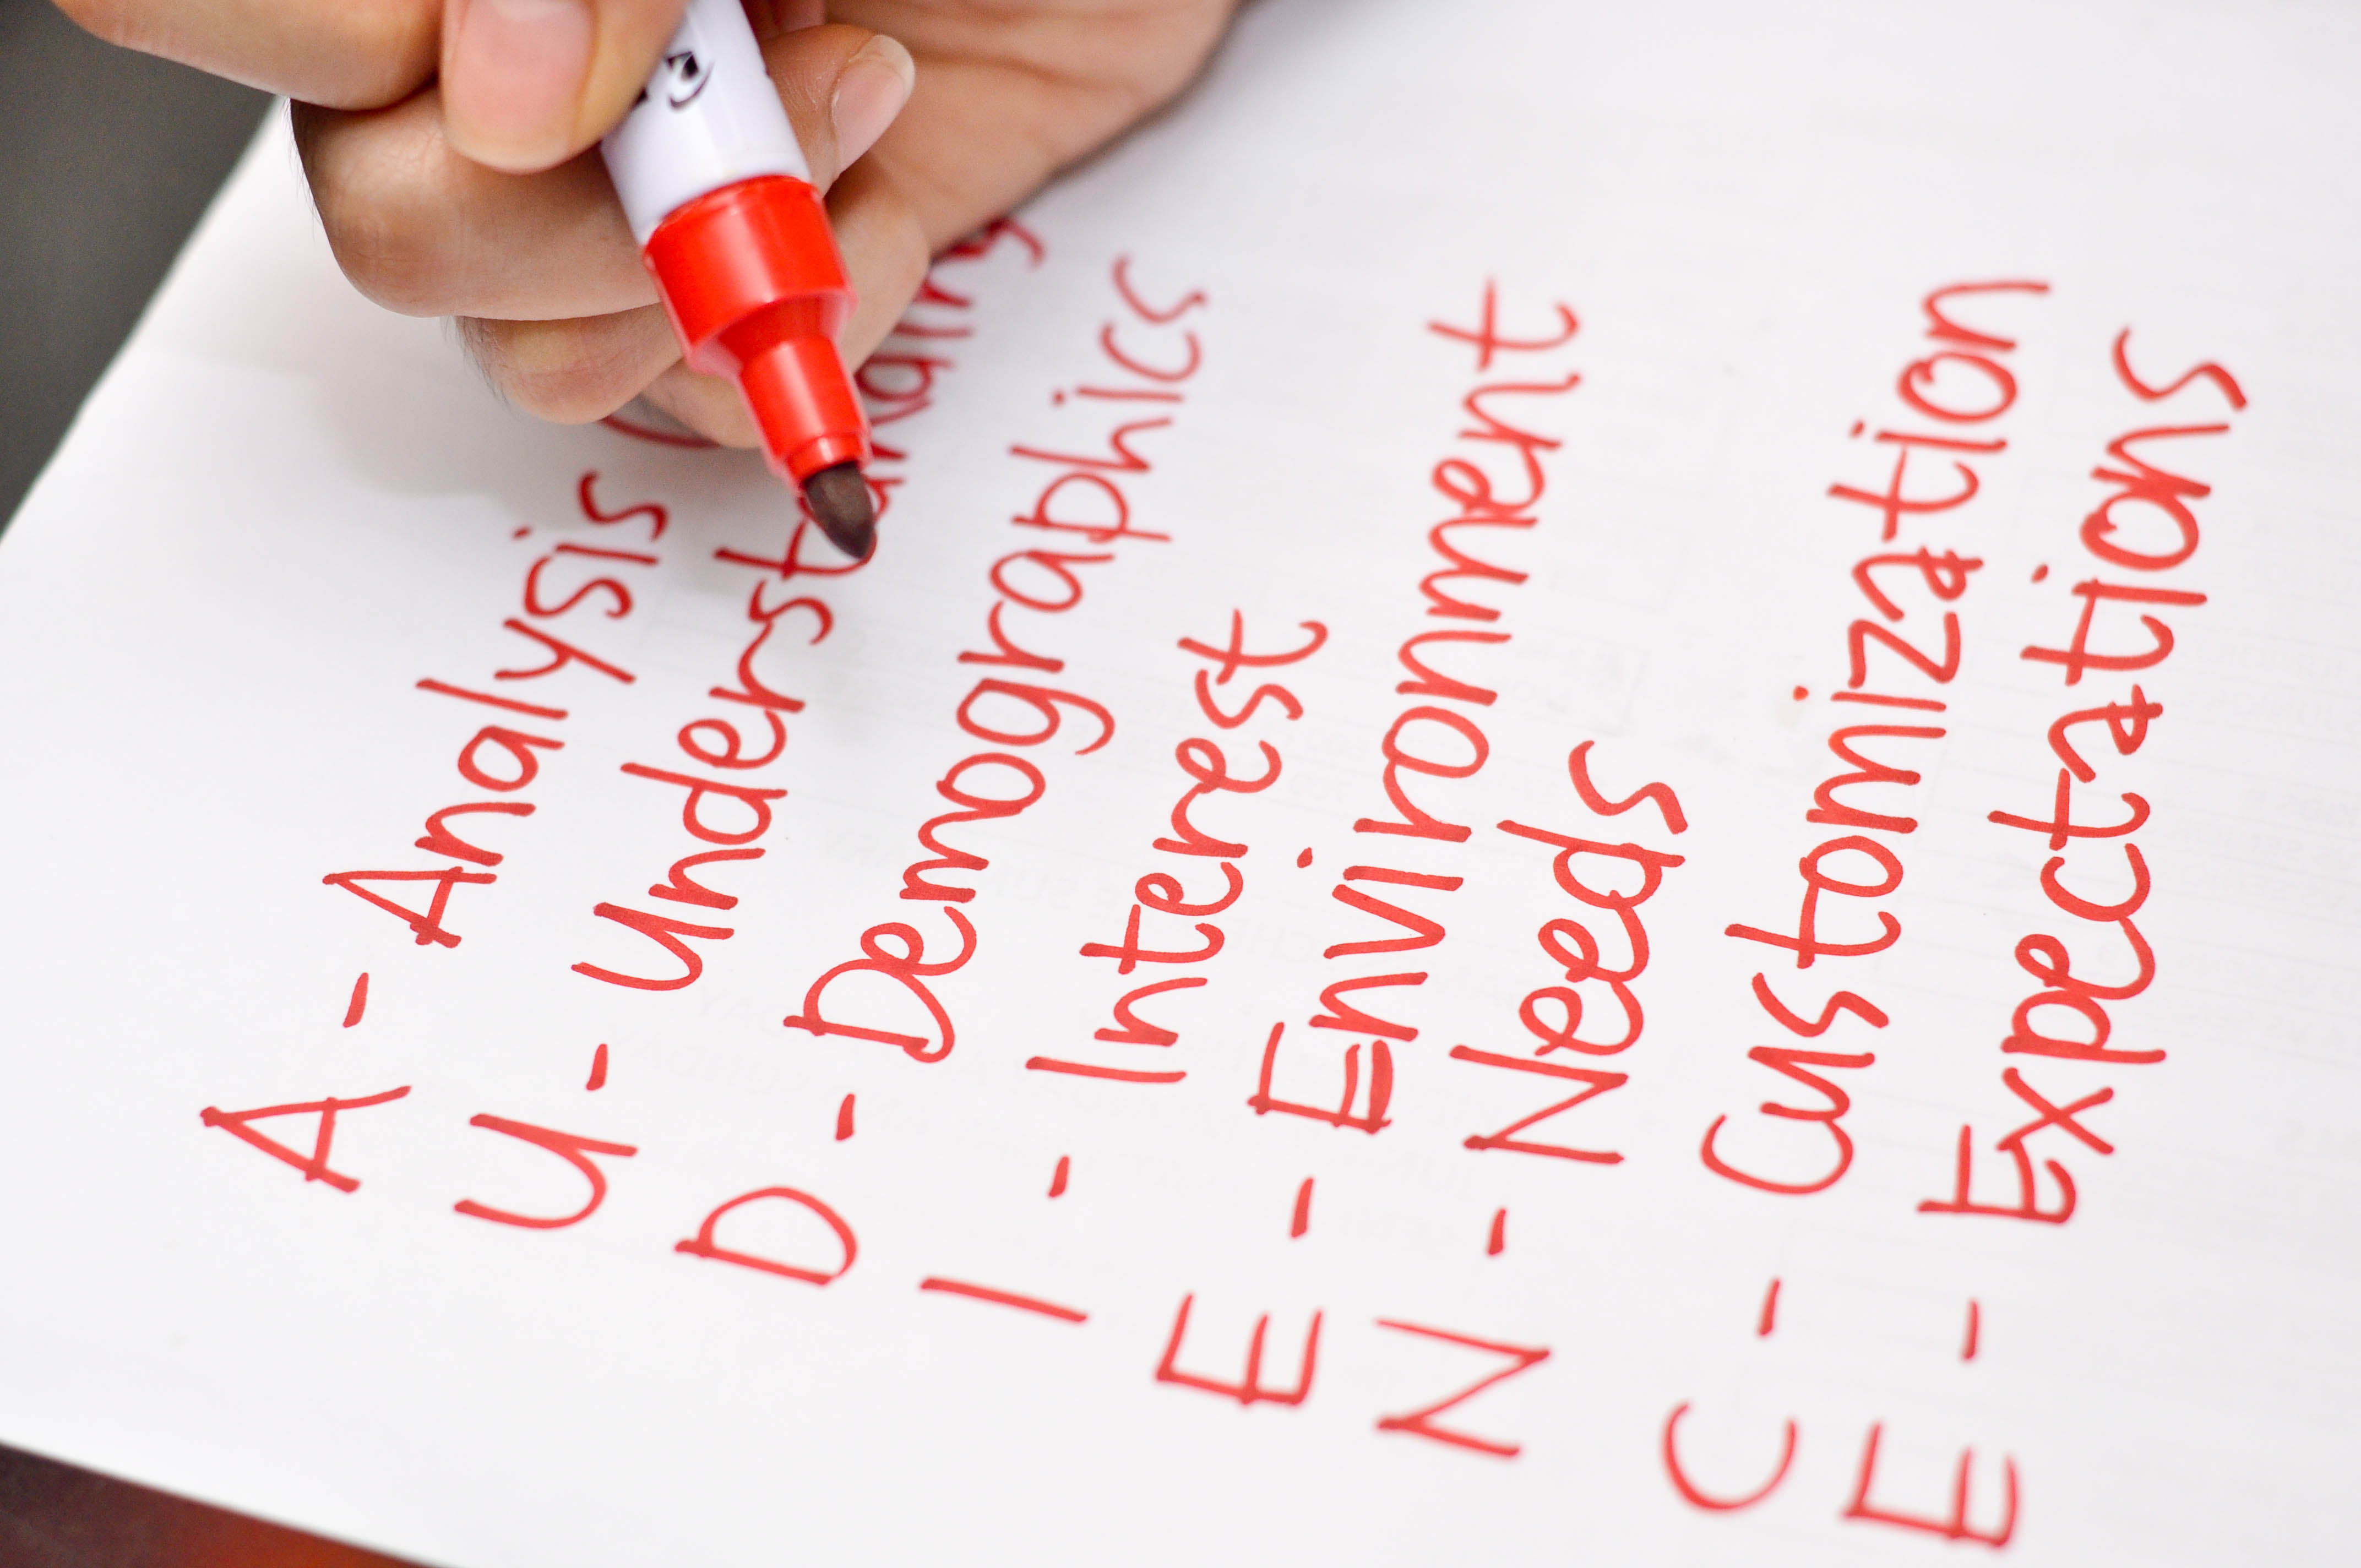 A - Analysis
U - Understanding
D - Demographics
I - Interest
E - Environment
N - Needs
C - Customization
E - Expectations